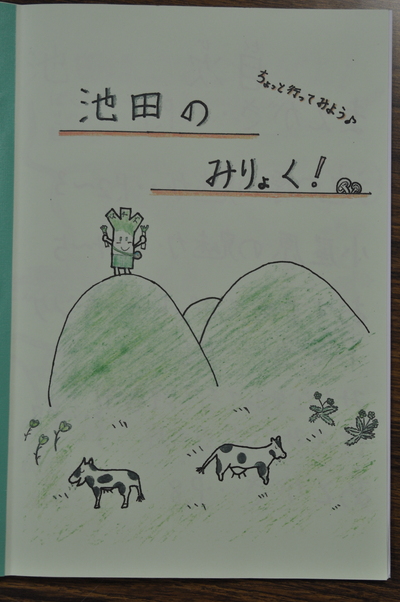 ちょっと行ってみよう♪
池田の
みりょく!